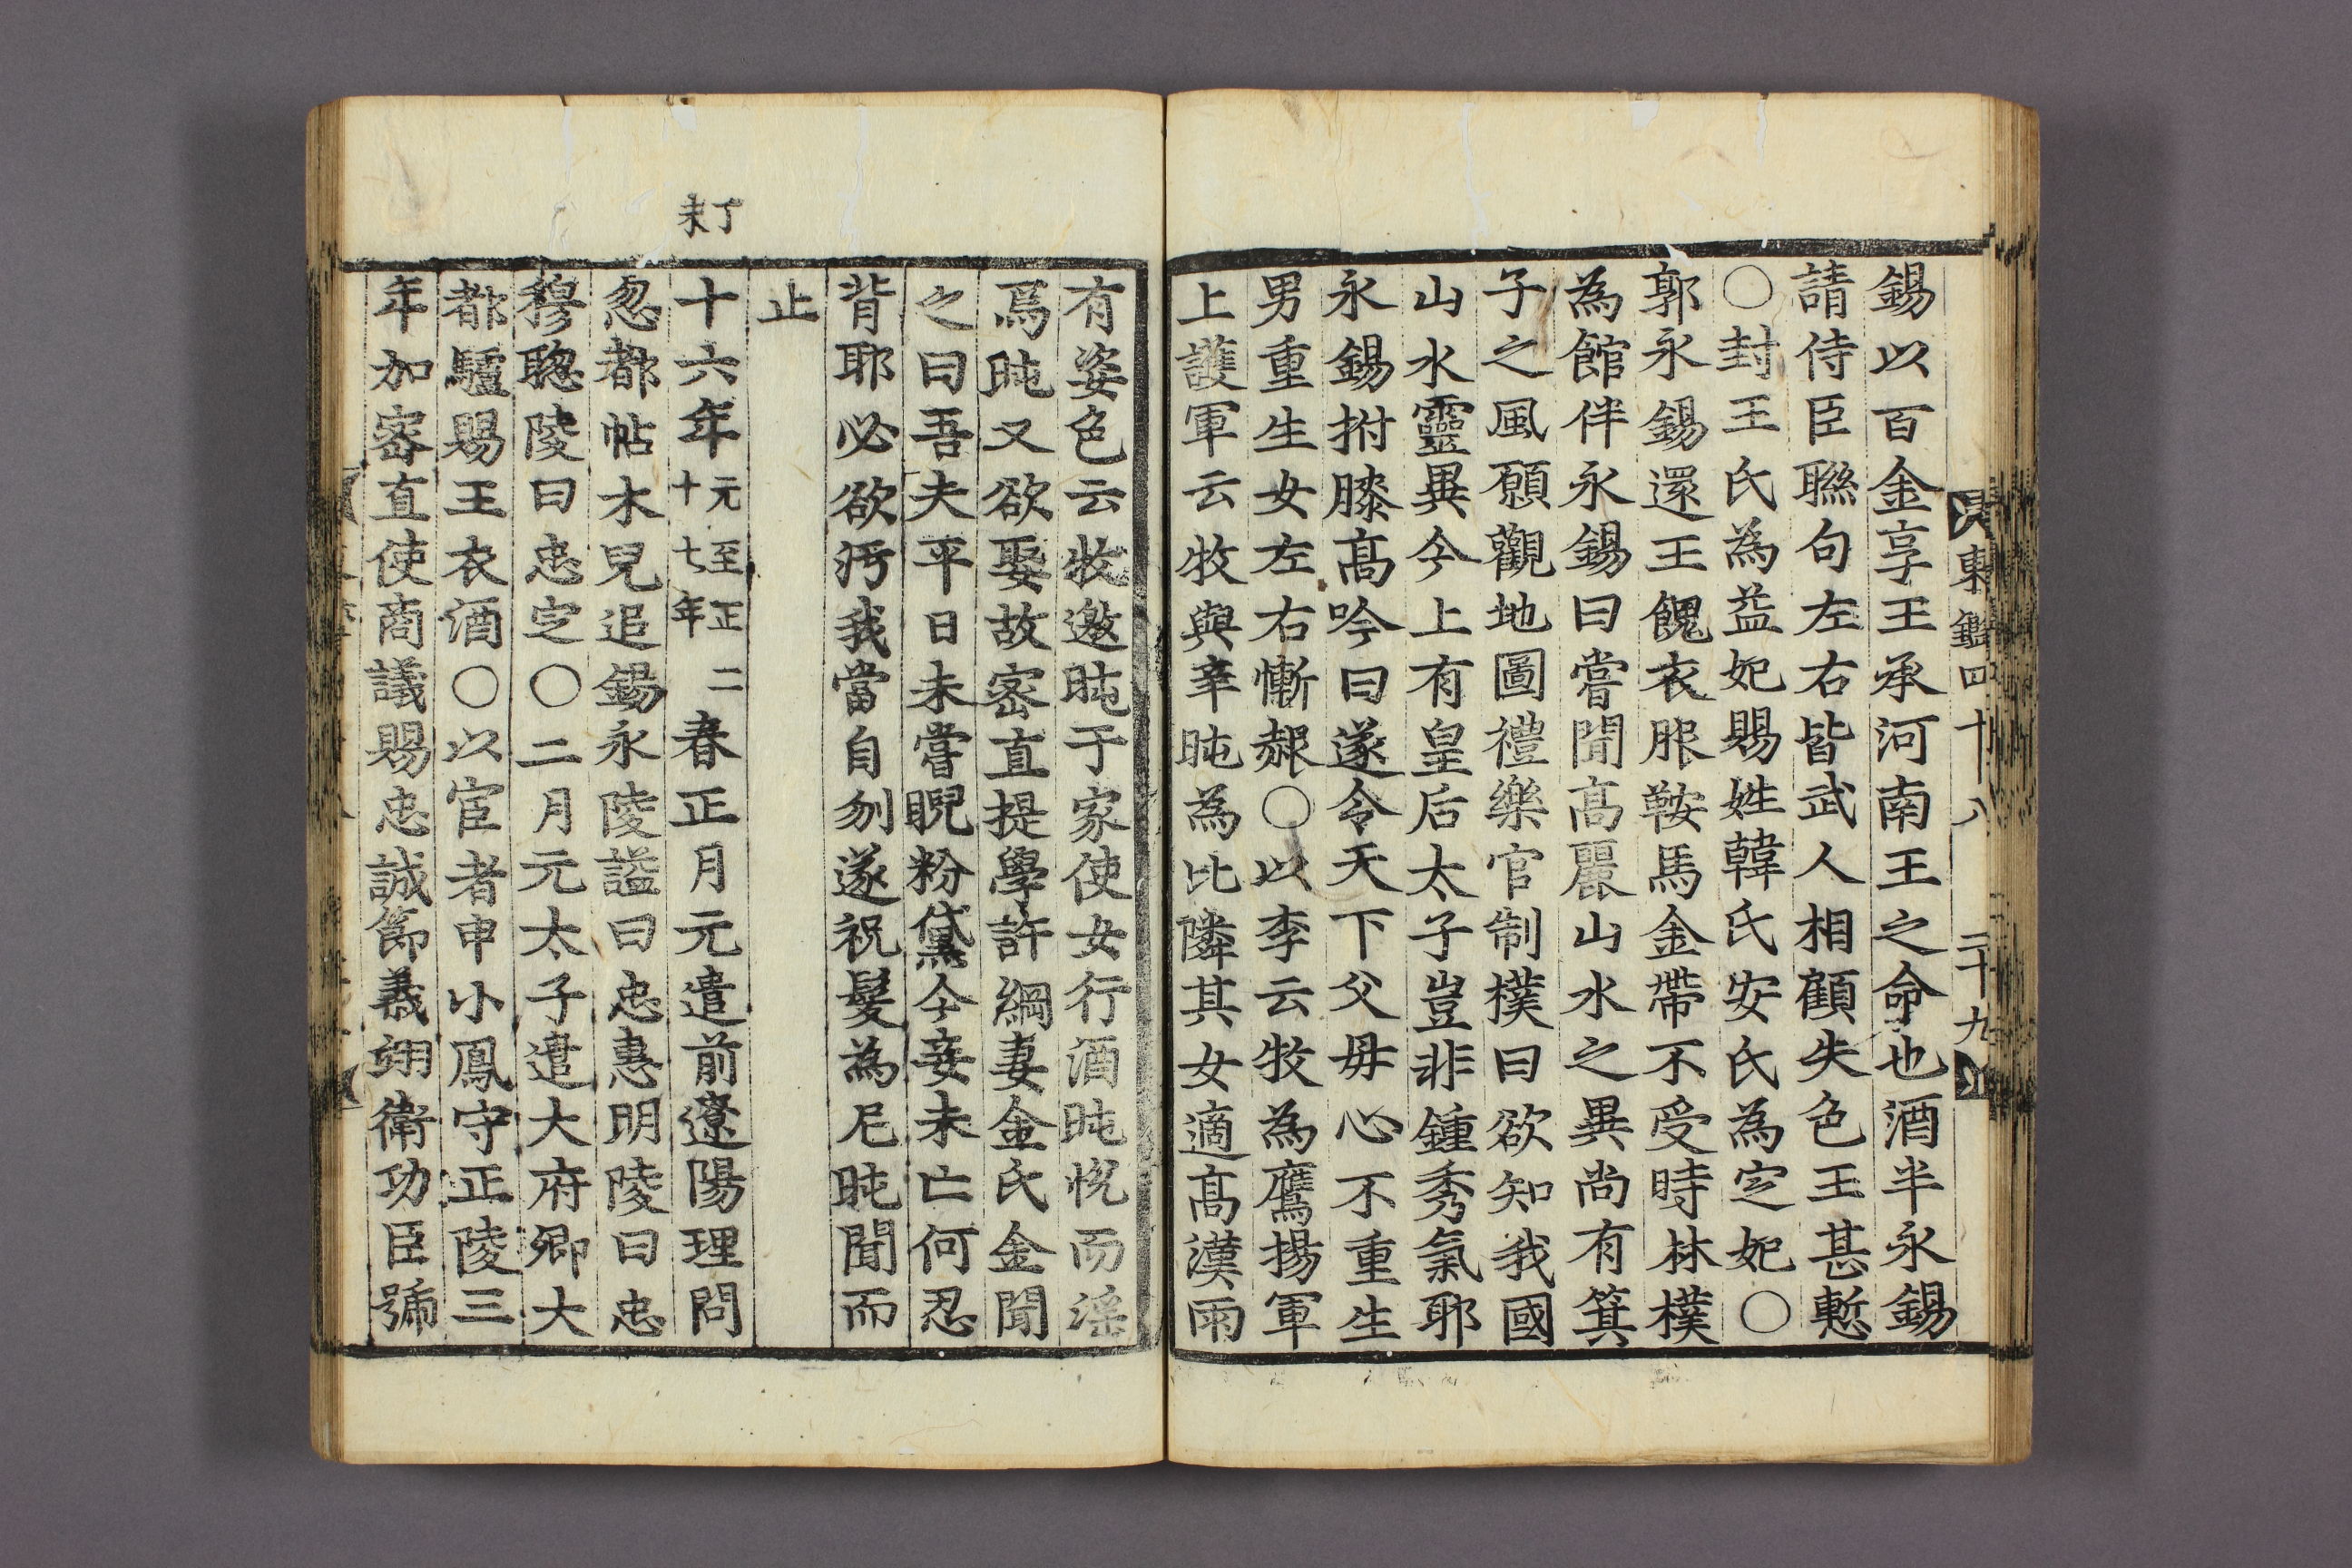 東鑑四十八 二十九
錫以百金享王承河南王之命也酒半永錫
請侍臣聯句左右皆武人相顧失色王甚慙
○封王氏為益妃賜姓韓氏安氏為定妃○
郭永錫還王餽衣服鞍馬金帶不受時林樸
為館伴永錫曰嘗聞髙麗山水之異尚有箕
子之風願觀地圖禮樂官制樸曰欲知我國
山水靈異今上有皇后太子豈非鍾秀氣耶
永錫拊膝髙吟曰遂令天下父母心不重生
男重生女左右慚赧○以李云牧為鷹揚軍
上護軍云牧與辛旽為比隣其女適髙漢雨
有姿色云牧邀旽于家使女行酒旽恱而滛
焉旽又欲娶故密直提學許綱妻金氏金聞
之曰吾夫平日未嘗睨粉黛今妾未亡何忍
背耶必欲汚我當自刎遂祝髮為尼旽聞而
止
丁未
十六年元至正二十七年春正月元遣前遼陽理問
忽都帖木兒追錫永陵謚曰忠惠明陵曰忠
穆聦陵曰忠定○二月元太子遣大府卿大
都驢賜王衣酒○以宦者申小鳳守正陵三
年加密直使商議賜忠誠節義翊衛功臣號